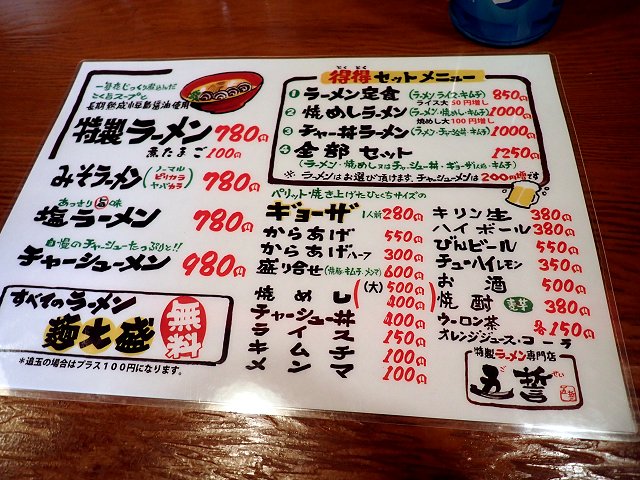 一昼夜じっくり煮込んだ
とく旨スープと
長期熟成小豆島醤油使用
特製ラーメン 780円
煮たまご 100円
みそラーメン (ノーマル ピリカラ ヤバカラ) 780円
あっさり旨味
塩ラーメン 780円
自慢のチャーシューたっぷりと!!
チャーシューメン 980円
すべてのラーメン
麺大盛 無料
*追玉の場合はプラス100円になります。
とく とく
得得セットメニュー
1 ラーメン定食 (ラーメン・ライス・キムチ) 850円
ライス大50円増し
2 焼めしラーメン (ラーメン・焼めし・キムチ) 1000円
焼めし大100円増し
3 チャー丼ラーメン (ラーメン・チャー丼・キムチ) 1000円
4 全部セット 1250円
(ラーメン・焼めし又はチャーシュー丼・ギョーザ(人前)・キムチ)
※ラーメンはお選び頂けます。チャーシューメンは200円増です
パリット・焼き上げたひとくちサイズの
ギョーザ 1人前 280円
からあげ 550円
からあげハーフ 300円
盛り合せ (焼豚・キムチ・メンマ) 600円
焼めし (大) 500円
400円
チャーシュー丼 400円
ライス 150円
キムチ 100円
メンマ 100円
キリン生 380円
ハイボール 380円
びんビール 550円
チューハイレモン 350円
お酒 500円
焼酎 麦 芋 380円
ウーロン茶 各150円
オレンジジュース・コーラ
特製ラーメン専門店
ご せい
五誓